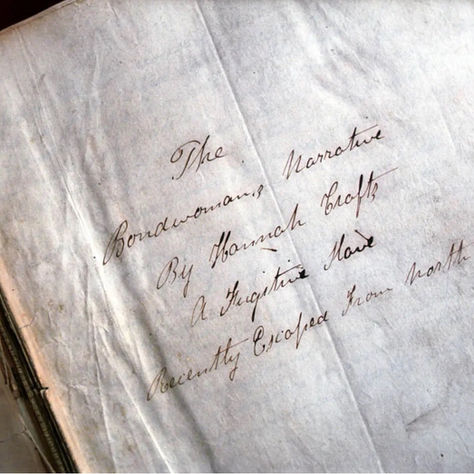 The
Bondwoman's Narrative
By Hannah Crafts
A Fugitive Slave
Recently Escaped From North